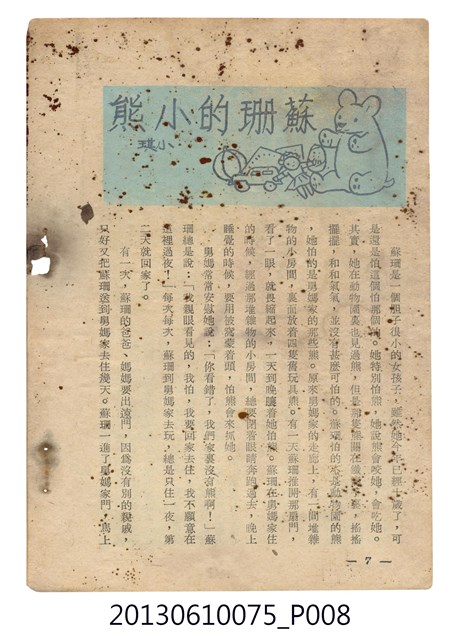 蘇珊的小熊
小琪
蘇珊是一個胆子很小的女孩子，雖然她今年已經七歲了，可
是還是怕這個怕那個的。她特別怕熊，她說熊會咬她，會吃她。
其實，她在動物園裏也見過熊，但是那隻熊關在鐵籠子裏，搖搖
擺擺，和和氣氣，並沒有甚麼可怕的。蘇珊怕的不是動物園的熊
，她怕的是舅媽家的那些熊。原來舅媽家的走廊上，有一間堆雜
物的小房間，裏面放着四隻舊玩具熊。有一天蘇珊推開那扇門，
看了一眼，就畏縮起來，一天到晚嚷着她怕熊。蘇珊在舅媽家住
的時候，經過那堆雜物的小房間，總要閉着眼睛奔跑過去，晚上
睡覺的時候，要用被窩蒙着頭，怕熊會來抓她。
舅媽常常安慰她說：「你看錯了，我們家裏沒有熊啊！」蘇
珊總是說：「我親眼看見的，我怕，我要回家去住，我不願意在
這裡過夜！」每次每次，蘇珊到舅媽家去玩，總是只住一夜，第
二天就回家了。
有一次，蘇珊的爸爸、媽媽要出遠門，因為沒有別的親戚，
只好又把蘇珊送到舅媽家去住幾天。蘇珊一進了舅媽家門，馬上
— 7 —
20130610075_P008